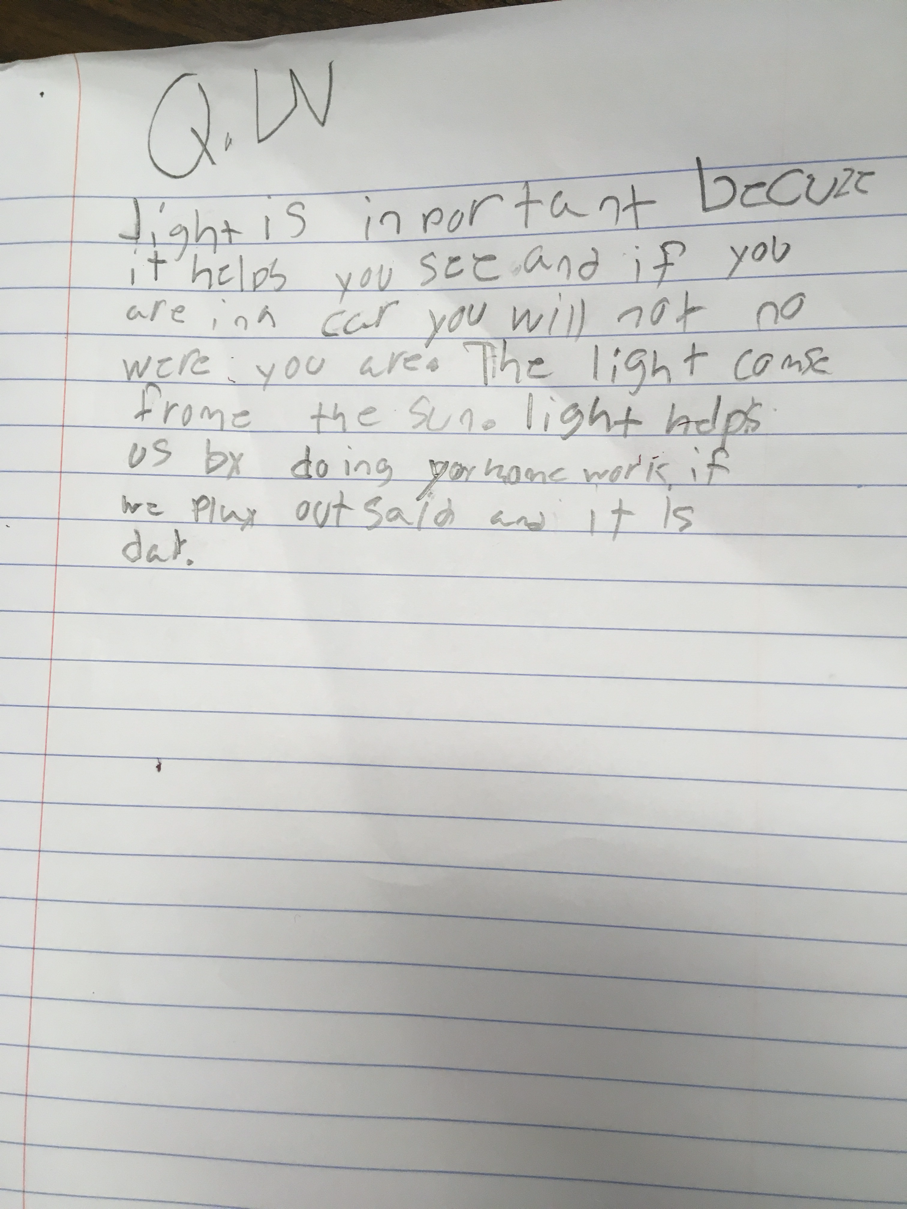 Q.W
light is inportant becuze
it helps you see and if you
are in a car you will not no
were you are. The light comse
frome the sun. light helps
us by doing yor home work if
we play out said and it is
dar.